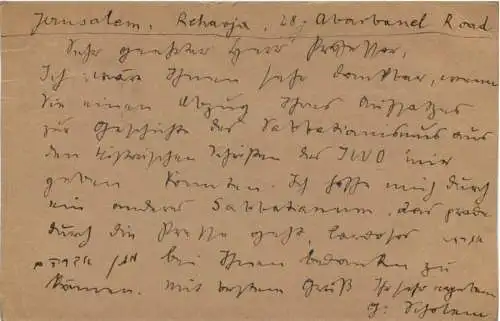 Jerusalem, Rehavja, 28, Abarbanel Road
Sehr geehrter Herr Professor,
Ich wäre Ihnen sehr dankbar, wenn
Sie einen Abzug Ihres Aufsatzes
zur Geschichte des Sabbatianismus aus
den Historischen Schriften des JWO mir
geben könnten. Ich hoffe mich durch
ein anderes Sabbatianum, das grade
durch die Presse geht,
bei Ihnen bedanken zu
können. Mit bestem Gruß Ihr sehr ergebener
G. Scholem